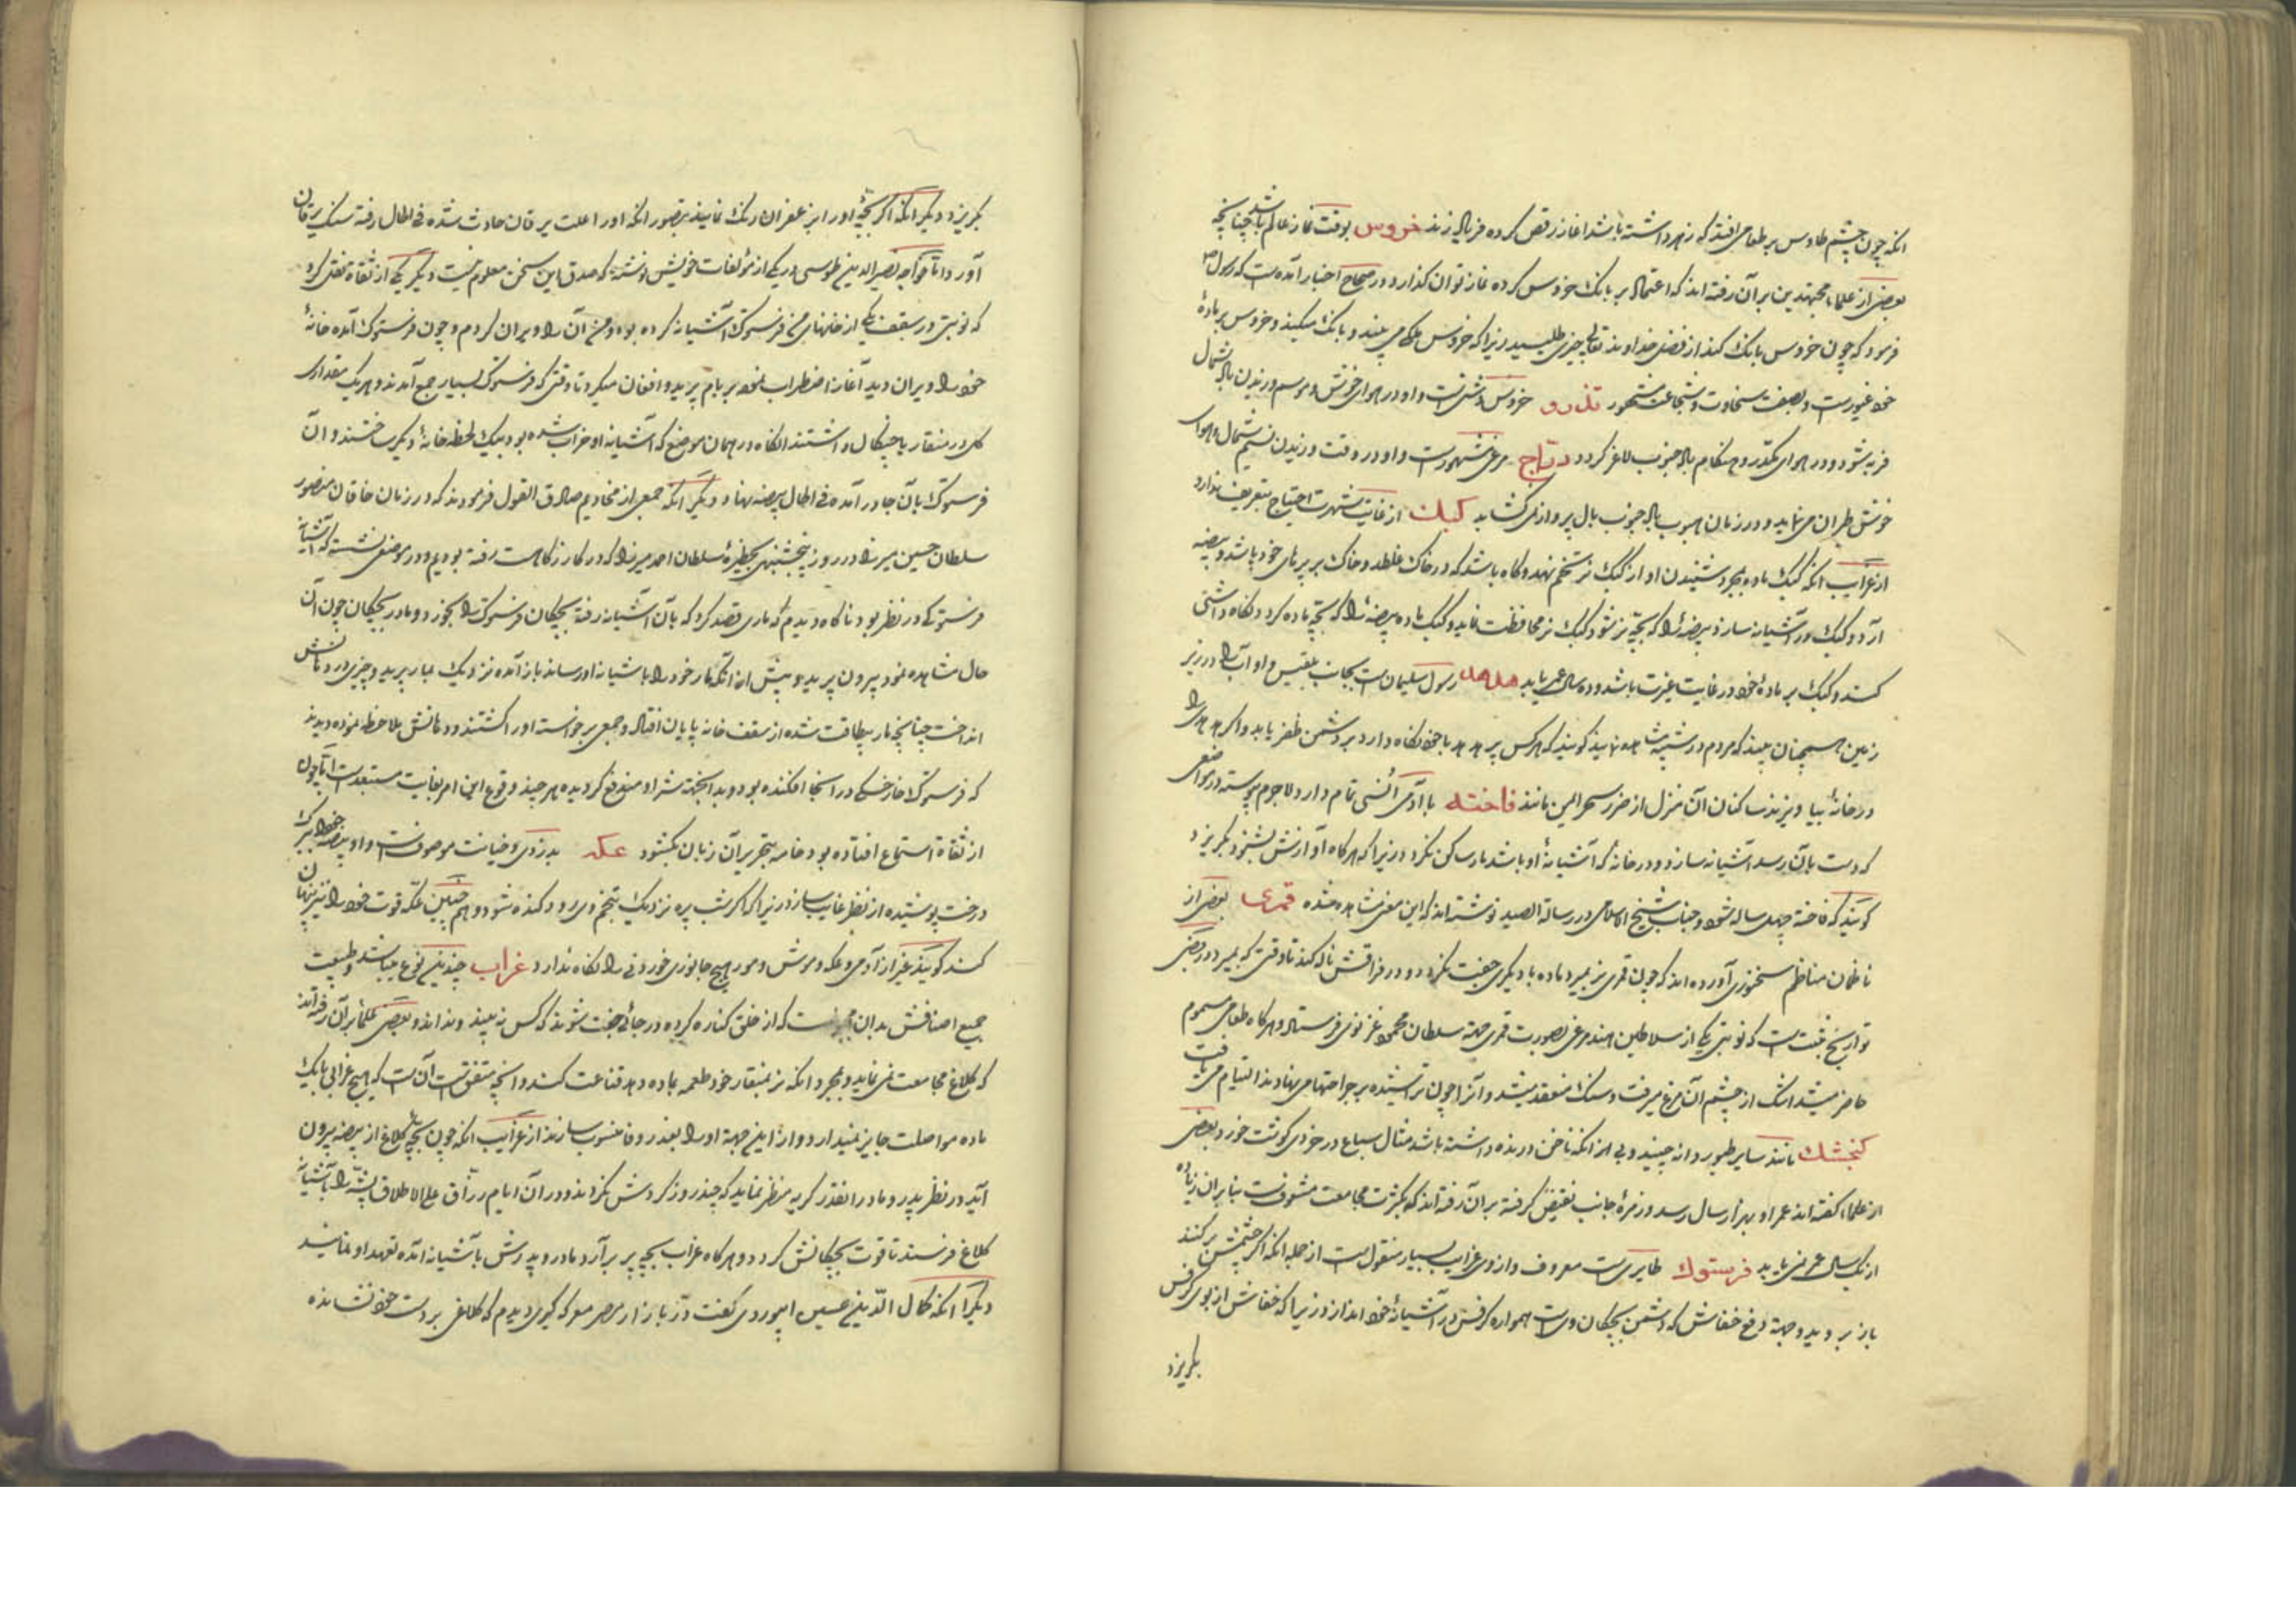 انکه چون چشم طاوس بر طعامی افتد که زهر داشته باشد اغاز رقص کرده فریاد زند خروس بوقت نماز عالم باشد چنانچه
بعضی از علماء مجتهدین بر آن رفته اند که اعتماد بر بانک خروس کرده نماز توان کذارد و در صحاح اخبار آمده است که رسول ص
فرمود که چون خروس بانک کند از فضل خداوند تعالی چیزی طلبید زیرا که خروس ملکی می بیند و بانک میکند و خروس بر مادهٔ
خود غیورست و بصفت سخاوت و شجاعت مشهور تذرو خروس دشتی است و او در هوای خوش و موسم وزیدن باد شمال
فربه شود و در هوای مکدر و هنکام باد جنوب لاغر کردد دراج مرغی مشهورست و او در وقت وزیدن نسیم شمال و هوای
خوش طیران می نماید و در زمان هبوب باد جنوب بال پرواز نمی کشاید کبک از غایت شهرت احتیاج بتعریف ندارد
از غرایب انکه کبک ماده بمجرد شنیدن او از کبک نر تخم نهد و کاه باشد که در خاک غلطد و خاک بر پرهای خود پاشد و بیضه
آرد و کبک دو آشیانه سازد بیضهٔ را که بچه نر شود کبک نر محافظت نماید و کبک ماده بیضهٔ را که بچه ماده کردد نکاه داشتی
کند و کبک بر مادهٔ خود در غایت غیرت باشد و ده سال عمر یابد هدهد رسول سلیمان است بجانب بلقیس و او آب را در زیر
زمین همچنان بیند که مردم در شیشه مشاهده نمایند کویند که هر کس پر هدهد با خود نکاه دارد بر دشمن ظفر یابد و اکر هدهد را
در خانهٔ بیاویزند ساکنان آن منزل از ضرر سحر ایمن مانند فاخته با آدمی انسی تمام دارد لاجرم پیوسته در مواضعی
که دست بآن رسد آشیانه سازد و در خانه که آشیانهٔ او باشد مار ساکن نکردد زیرا که هر کاه آوازش بشنود بکریزد
کویند که فاخته چهل ساله شود و جناب شیخ الاسلامی در رسالة الصید نوشته اند که این معنی مشاهده شده قمری بعضی از
ناظمان مناظم سخنوری آورده اند که چون قمری نر بمیرد ماده با دیکری جفت نکردد و در فراقش ناله کند تا وقتی که بمیرد و در بعضی
تواریخ مثبت است که نوبتی یکی از سلاطین هند مرغی بصورت قمری جهة سلطان محمود غزنوی فرستاد و هر کاه طعامی مسموم
حاضر میشد اشک از چشم آن مرغ میرفت و سنک منعقد میشد و آنرا چون تراشیده بر جراحتها می نهادند التیام می یافت
کنجشک مانند سایر طیور دانه چیند و بی انکه ناخن درنده داشته باشد مثال سباع در خردی کوشت خورد و بعضی
از علماء کفته اند عمر او بهزار سال رسد و زمرهٔ جانب نقیض کرفته بر آن رفته اند که بکثرت مجامعت مشعوفست بنابران زیاده
از یک سال عمر نمی یابد فرستوک طایری ست معروف و از وی غرایب بسیار منقول است از جمله انکه اکر چشمش بر کنند
باز بر روید و جهة دفع خفاش که دشمن بچکان وی است همواره کرفس در آشیانهٔ خود اندازد زیرا که خفاش از بوی کرفس
بکریزد
بکریزد و دیکر انکه اکر بچهٔ او را بزعفران رنک نمایند بتصور انکه او را علت یرقان حادث شده فی الحال رفته سنک یرقان
آورد اما خواجه نصیر الدین طوسی در یکی از مؤلفات خویش نوشته که صدق این سخن معلوم نیست و دیکر یکی از ثقاة نقل کرد
که نوبتی در سقف یکی از خانهای من فرستوک آشیانه کرده بود و من آن را ویران کردم و چون فرستوک آمده خانهٔ
خود را ویران دید آغاز اضطراب نموده بر بام پرید و افغان میکرد تا وقتی که فرستوک بسیار جمع آمدند و هر یک مقداری
کل در منقار یا چنکال داشتند انکاه در همان موضع که آشیانه او خراب شده بود بیک لحظه خانهٔ دیکر ساختند و آن
فرستوک بآن جا در آمده فی الحال بیضه نهاد و دیکر آنکه جمعی از مخادیم صادق القول فرمودند که در زمان خاقان منصور
سلطان حسین میرزا در روز پنجشنبهی بحظیرهٔ سلطان احمد میرزا که در کازرکاهست رفته بودیم و در موضعی نشسته که آشیانهٔ
فرستوکی در نظر بود ناکاه دیدم که ماری قصد کرد که بآن آشیانه رفته بچکان فرستوک را بخورد و مادر بچکان چون آن
حال مشاهده نمود بیرون پرید و پیش از آنکه مار خود را باشیانه او رساند باز آمده نزدیک بمار پرید و چیزی در دهانش
انداخت چنانچه مار بیطاقت شده از سقف خانه پایان افتاد و جمعی برخواسته او را کشتند و دهانش ملاحظه نموده دیدند
که فرستوک خارخسکی در انجا افکنده بود و بدانجهة شر او مندفع کردیده هر چند وقوع این امر بغایت مستبعدست اما چون
از ثقاة استماع افتاده بود خامه بتحریر آن زبان بکشود عکه بدزدی و خیانت موصوفست و او بیضه خود را ببرک
درخت پوشیده از نظر غایب سازد زیرا که اکر شب پره نزدیک بتخم وی رود کنده شود و هم چنین عکه قوت خود را نیز پنهان
کند کویند غیر از آدمی و عکه و موش و مور هیچ جانوری خوردنی را نکاه ندارد غراب چندین نوع میباشد و طبیعت
جمیع اصنافش بدان ست که از خلق کناره کرده در جائی جفت شوند که کس نه بیند و نداند و بعضی علما بر آن رفته اند
که کلاغ مجامعت نمی نماید و بمجرد انکه نر بمنقار خود طعمه بماده دهد قناعت کنند و انچه متفق است آن است که هیچ غرابی با یک
ماده مواصلت جایز نمیدارد و از این جهة او را بغدر و فا منسوب سازند از غرایب انکه چون بچه کلاغ از بیضه بیرون
آید در نظر پدر و مادر انقدر کریه منظر نماید که چند روز کردش نکردند و در آن ایام رزاق علی الاطلاق پشه را بآشیانهٔ
کلاغ فرستد تا قوت بچکانش کردد و هر کاه غراب بچه پر بر آرد مادر و پدرش بآشیانه آمده تعهد او نمایند
دیکر آنکه کمال الدین حسین ابیوردی کفت در بازار مصر معرکه کیری دیدم که کلاغی بر دست خود نشانده